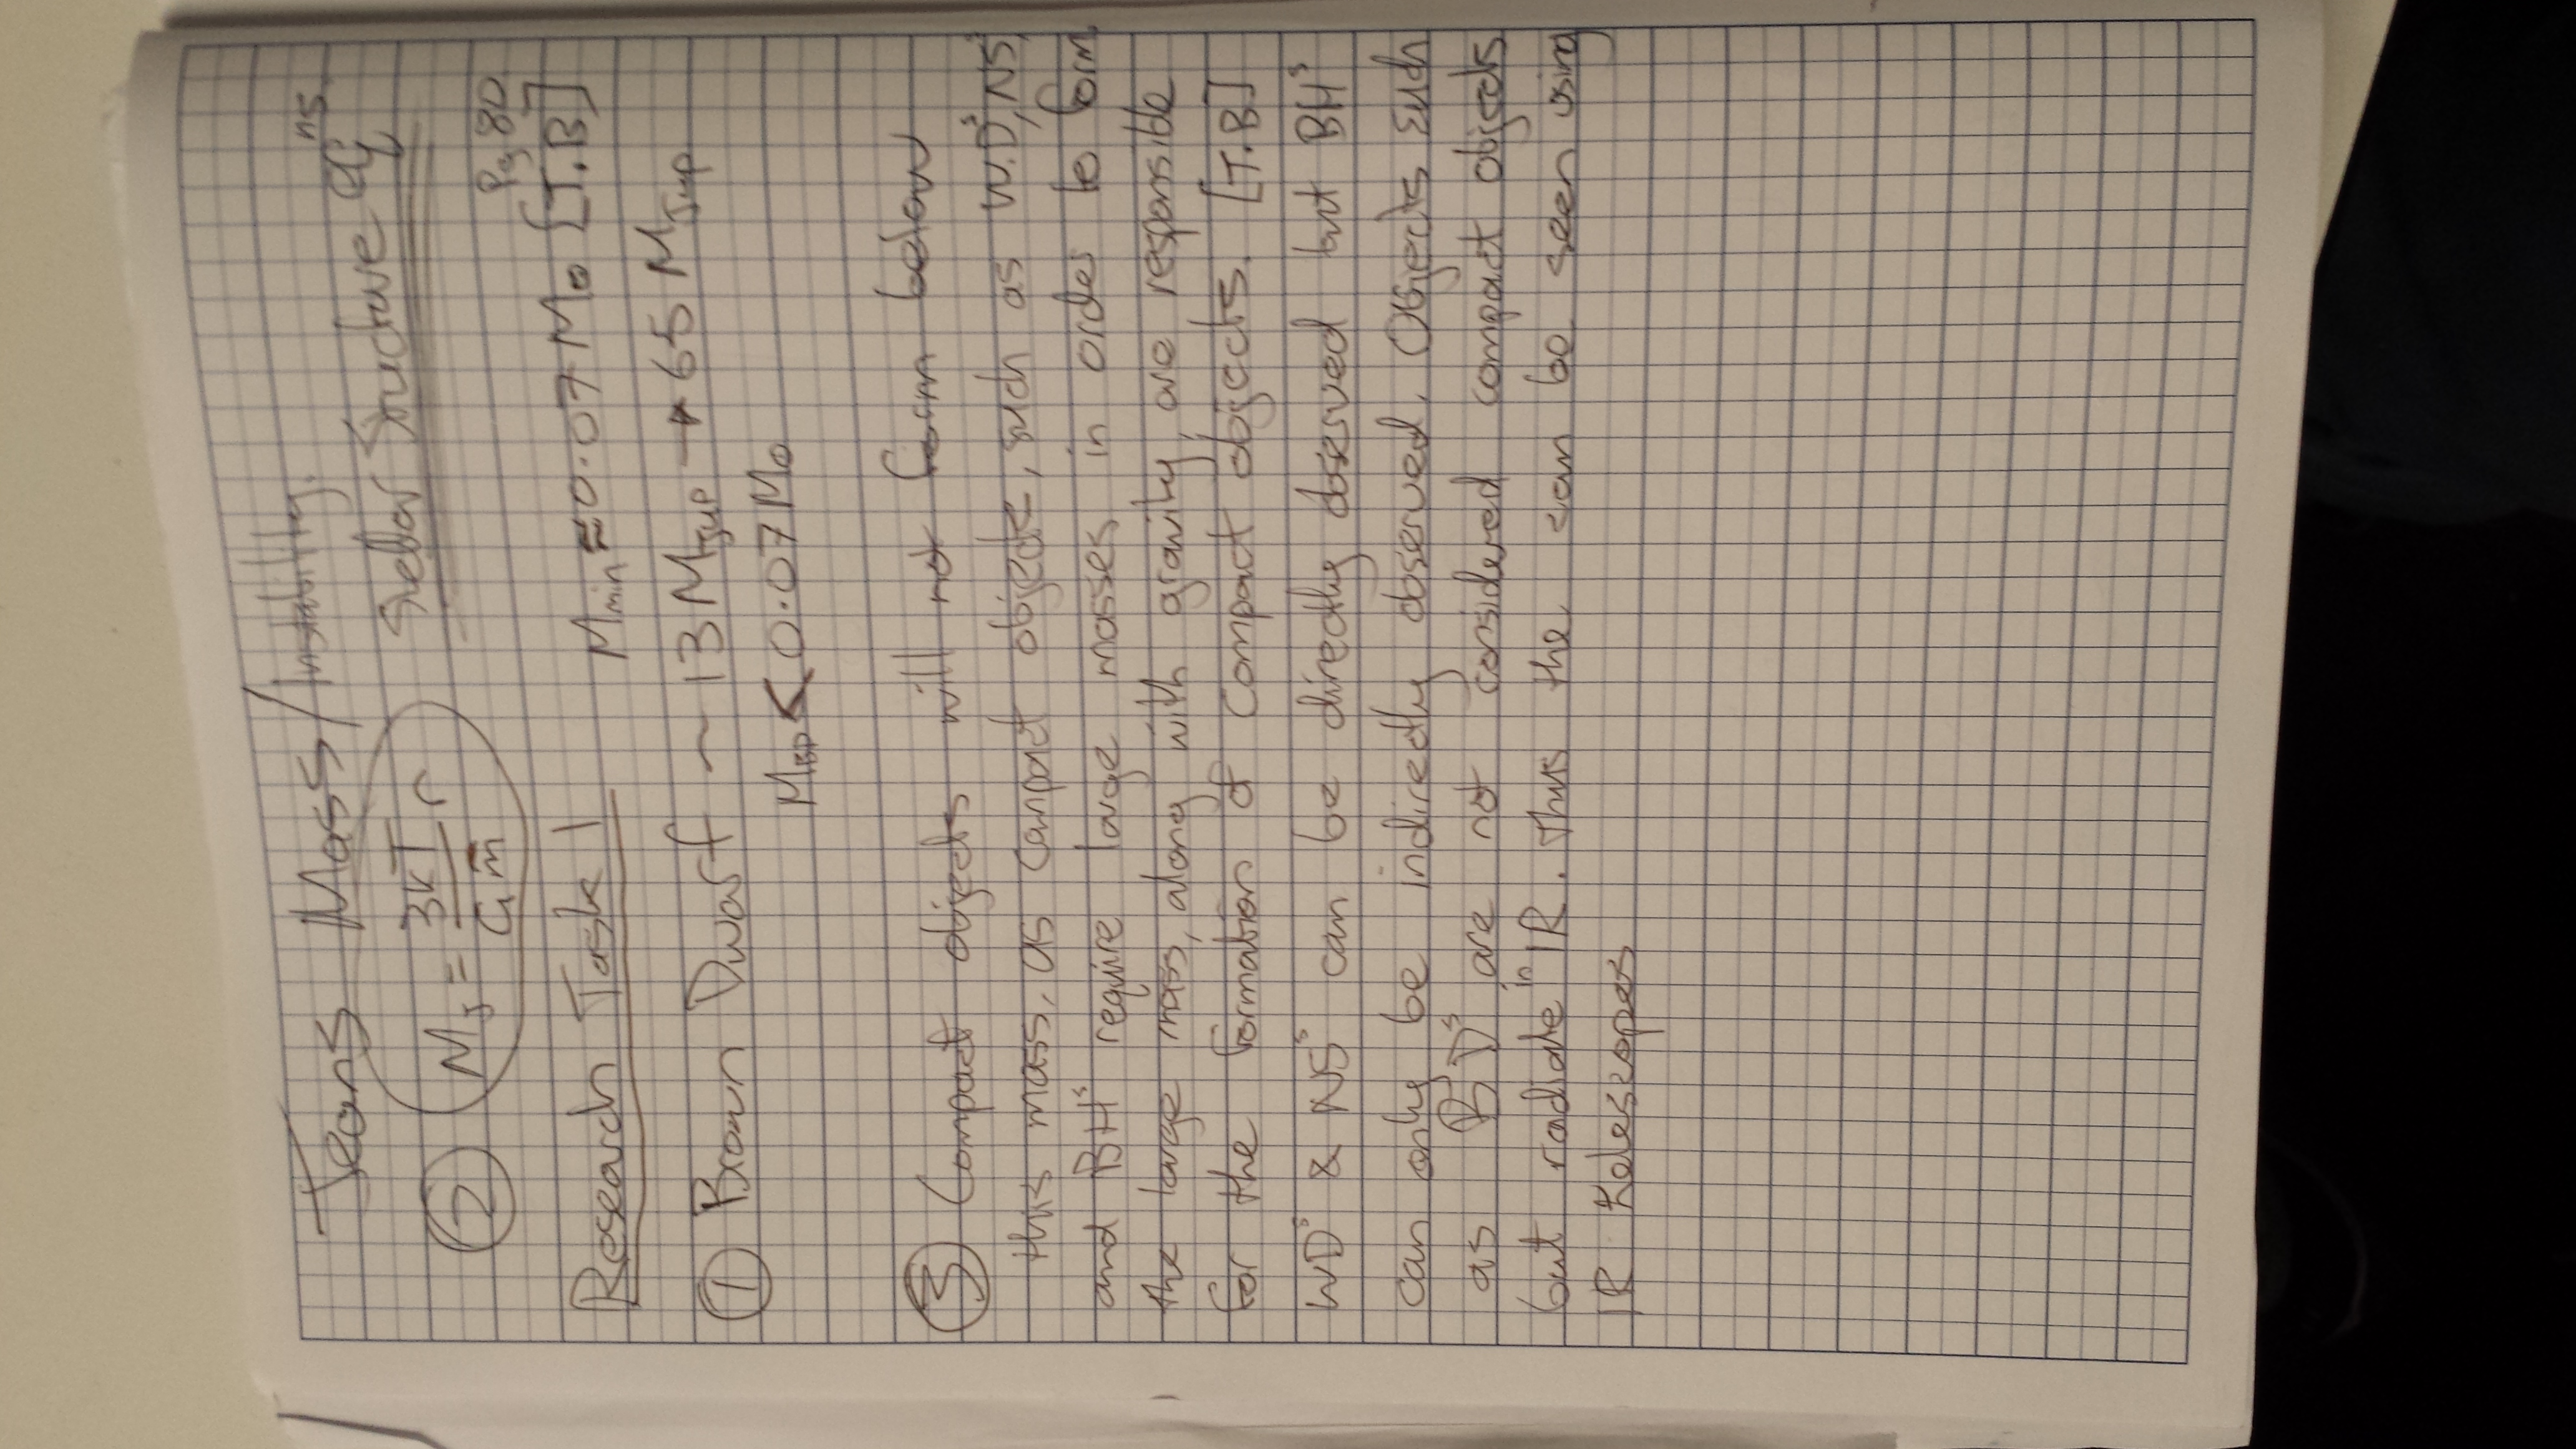 Jeans Mass/Instability.
Stellar Structure eqⁿˢ
② M_J = 3kT/Gm̄ r
Pg 80
Research Task 1 M_min ≈ 0.07 M⊙ [T.B]
① Brown Dwarf ~ 13 M_Jup → 65 M_Jup
M_BD < 0.07 M⊙
③ Compact objects will not form below
this mass, as compact objects, such as W.Dˢ, NSˢ
and BHˢ require large masses in order to form
the large mass, along with gravity, are responsible
for the formation of compact objects. [T.B]
WDˢ & NSˢ can be directly observed but BHˢ
can only be indirectly observed. Objects such
as BDˢ are not considered compact objects
but radiate in IR. Thus the can be seen using
IR telescopes